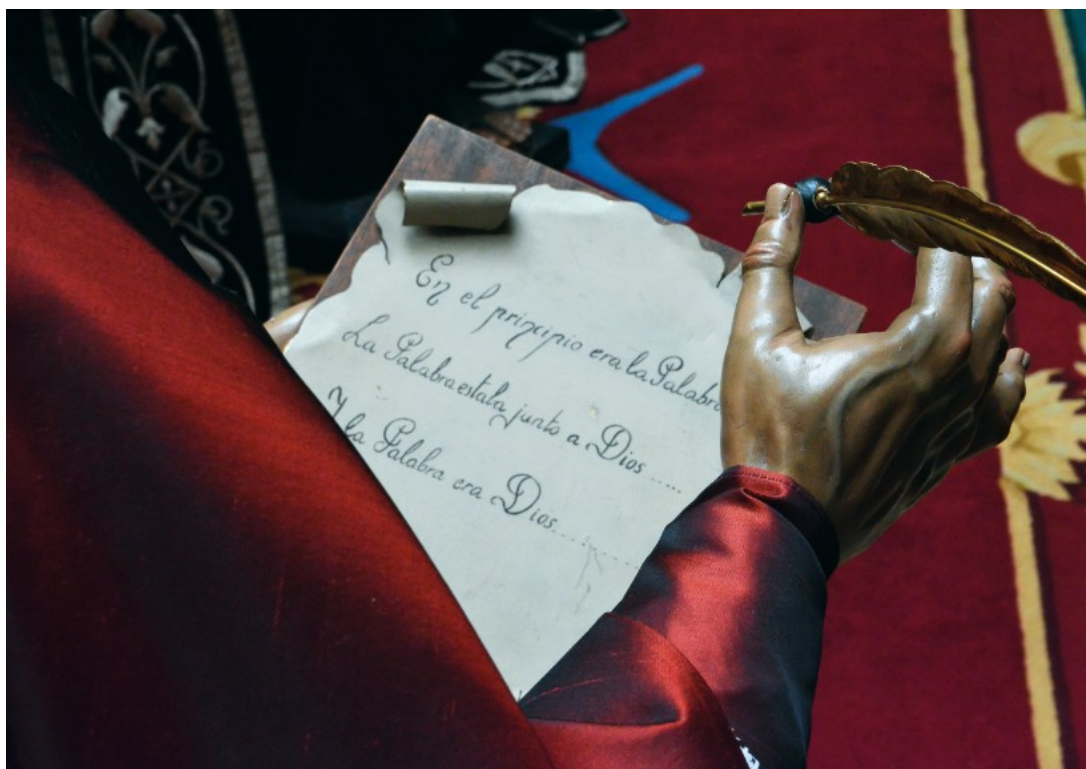 En el principio era la Palabra
La Palabra estaba junto a Dios......
Y la Palabra era Dios.........